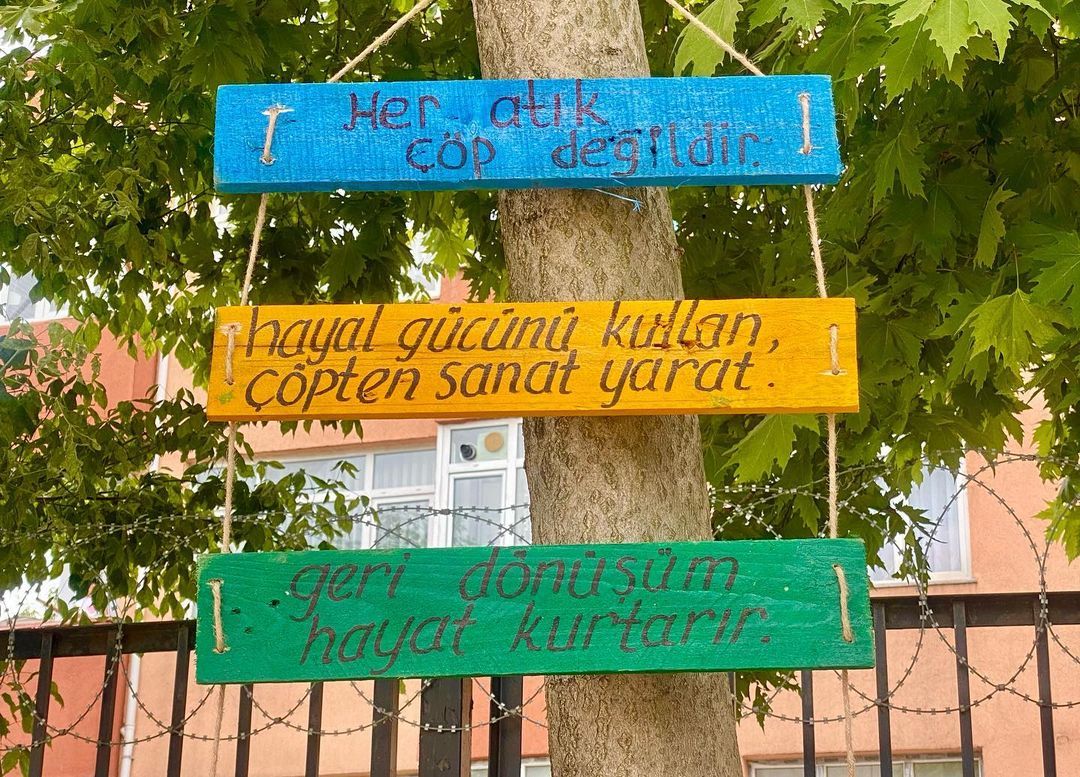 Her atık
çöp değildir.
hayal gücünü kullan,
çöpten sanat yarat.
geri dönüşüm
hayat kurtarır.